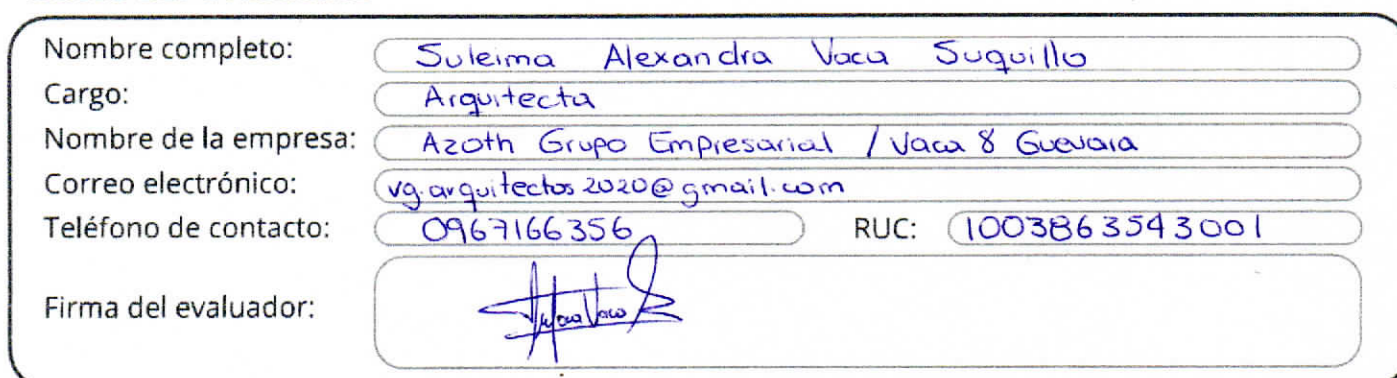 Nombre completo: Suleima Alexandra Vaca Suquillo
Cargo: Arquitecta
Nombre de la empresa: Azoth Grupo Empresarial / Vaca & Guevara
Correo electrónico: vg.arquitectos2020@gmail.com
Teléfono de contacto: 0967166356 RUC: 1003863543001
Firma del evaluador: